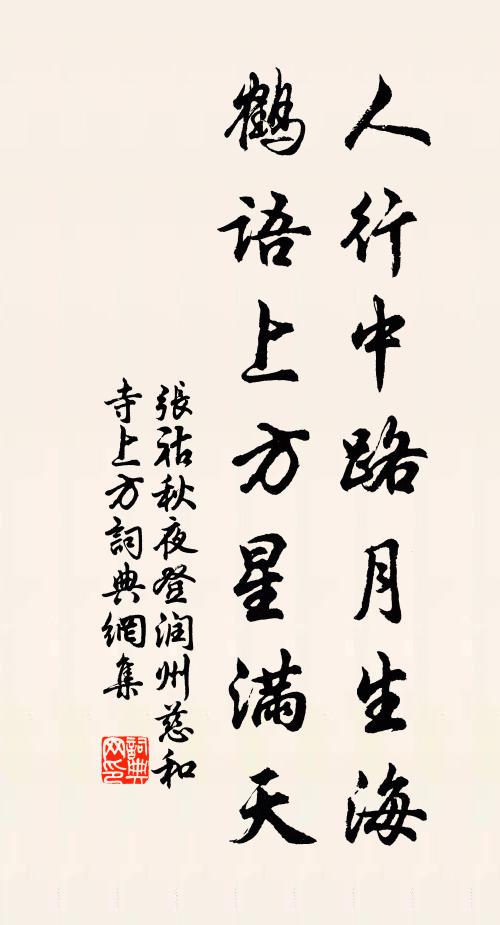 人行中路月生海
鶴語上方星满天
張祜秋夜登润州慈和
寺上方詞典網集
詞典
网印